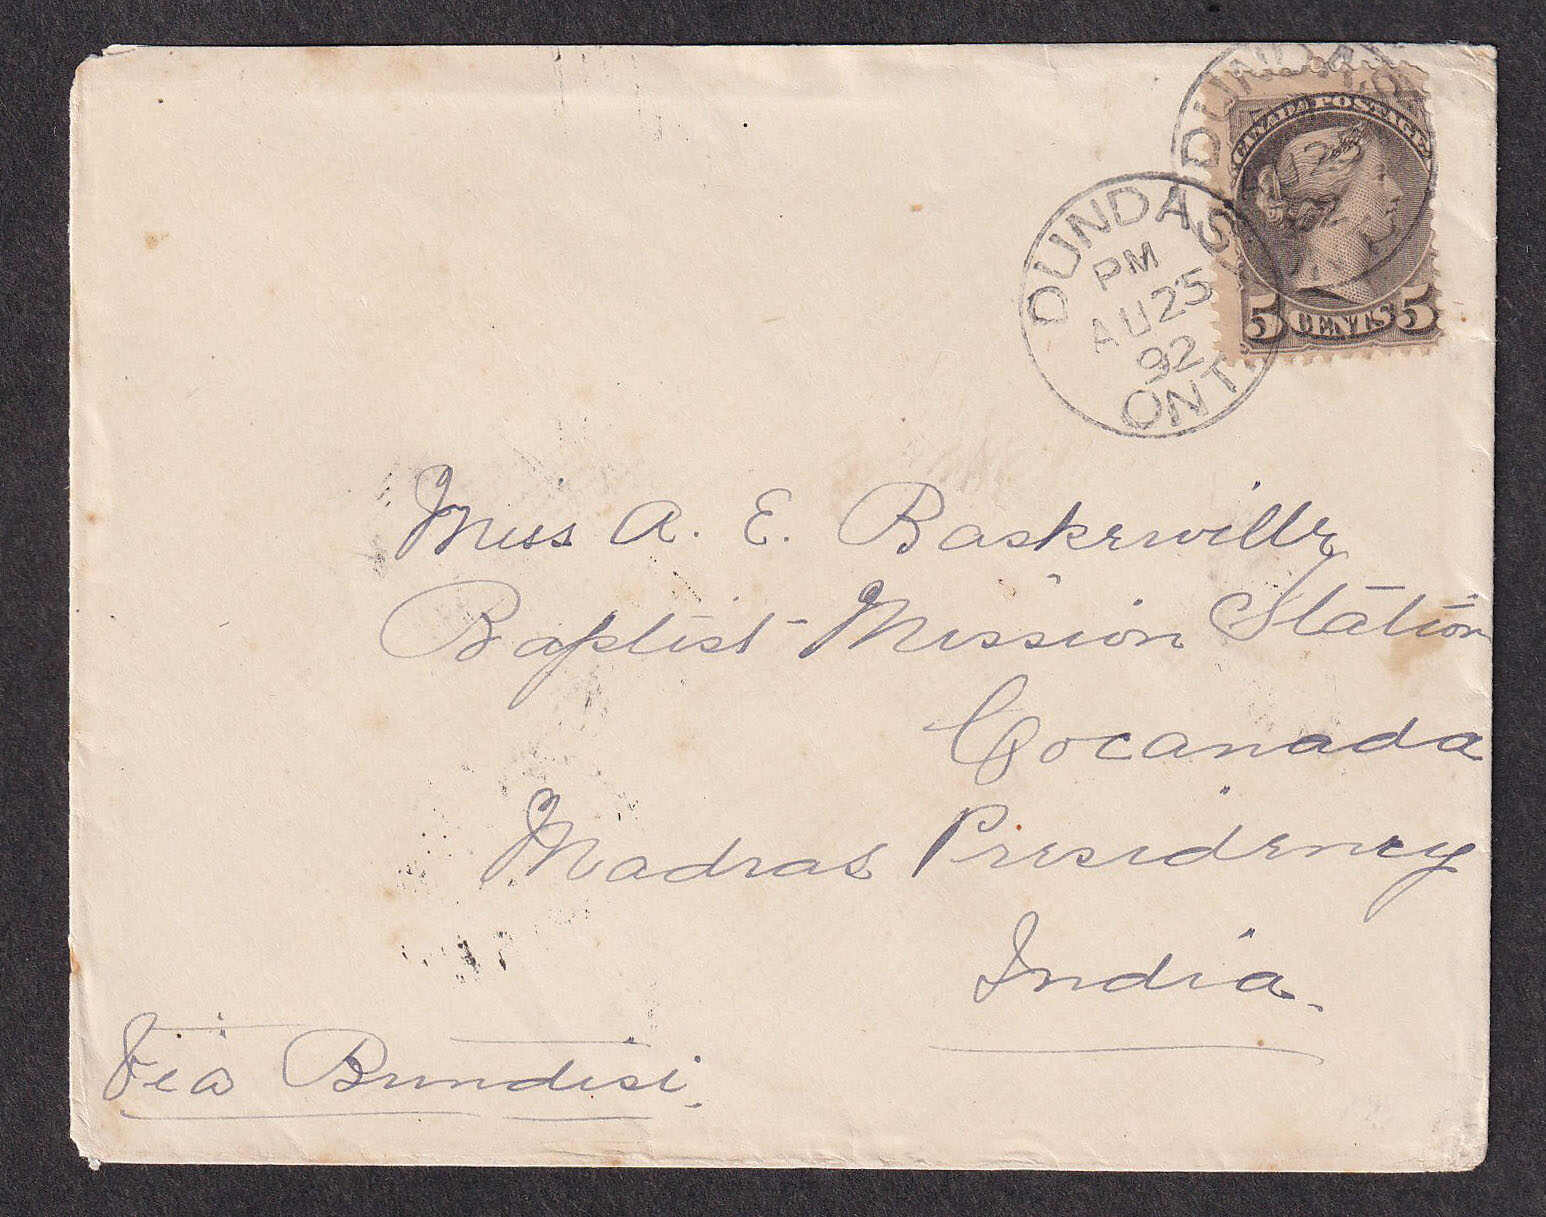 CANADA POSTAGE
5 CENTS 5
DUNDAS
AU 25
92
DUNDAS
PM
AU 25
92
ONT.
Miss A. E. Baskerville
Baptist Mission Station
Cocanada
Madras Presidency
India.
Via Brindisi.